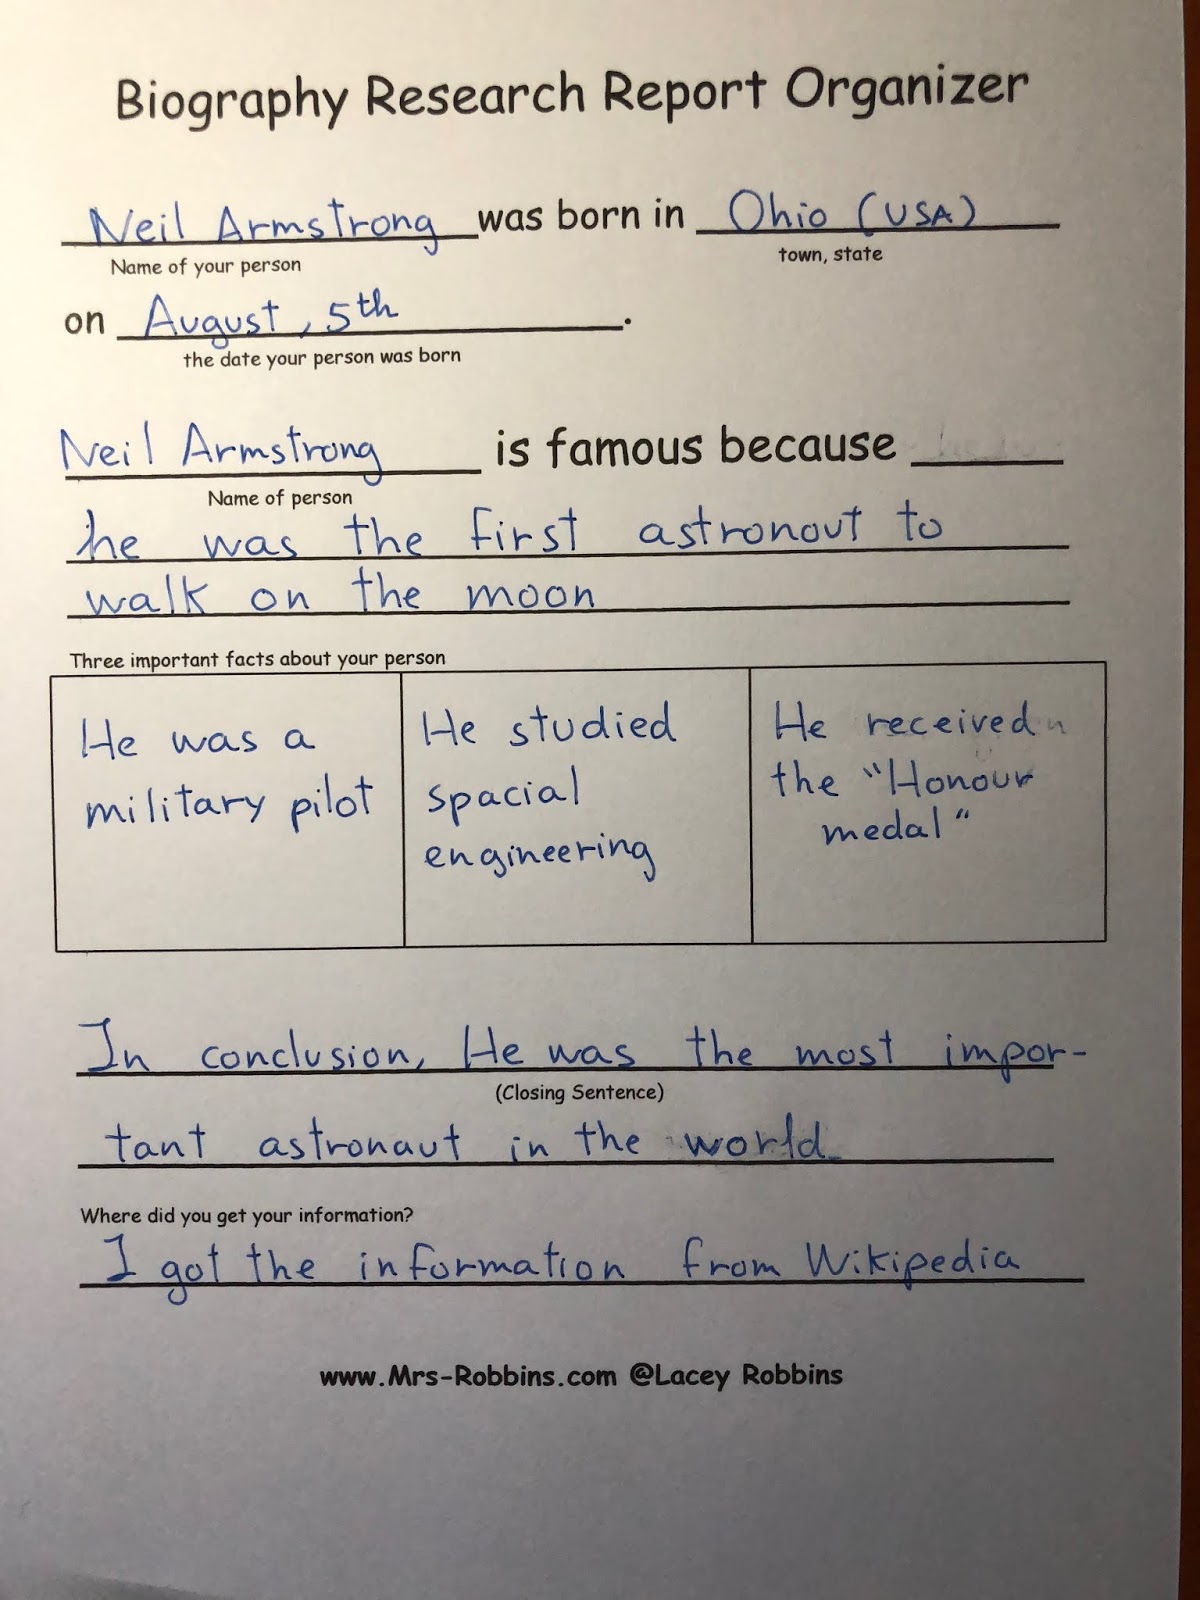 Biography Research Report Organizer
Neil Armstrong was born in Ohio (USA)
Name of your person town, state
on August, 5th.
the date your person was born
Neil Armstrong is famous because
Name of person
he was the first astronout to
walk on the moon
Three important facts about your person
He was a
military pilot
He studied
spacial
engineering
He received
the "Honour
medal"
In conclusion, He was the most impor-
(Closing Sentence)
tant astronaut in the world
Where did you get your information?
I got the information from Wikipedia
www.Mrs-Robbins.com @Lacey Robbins